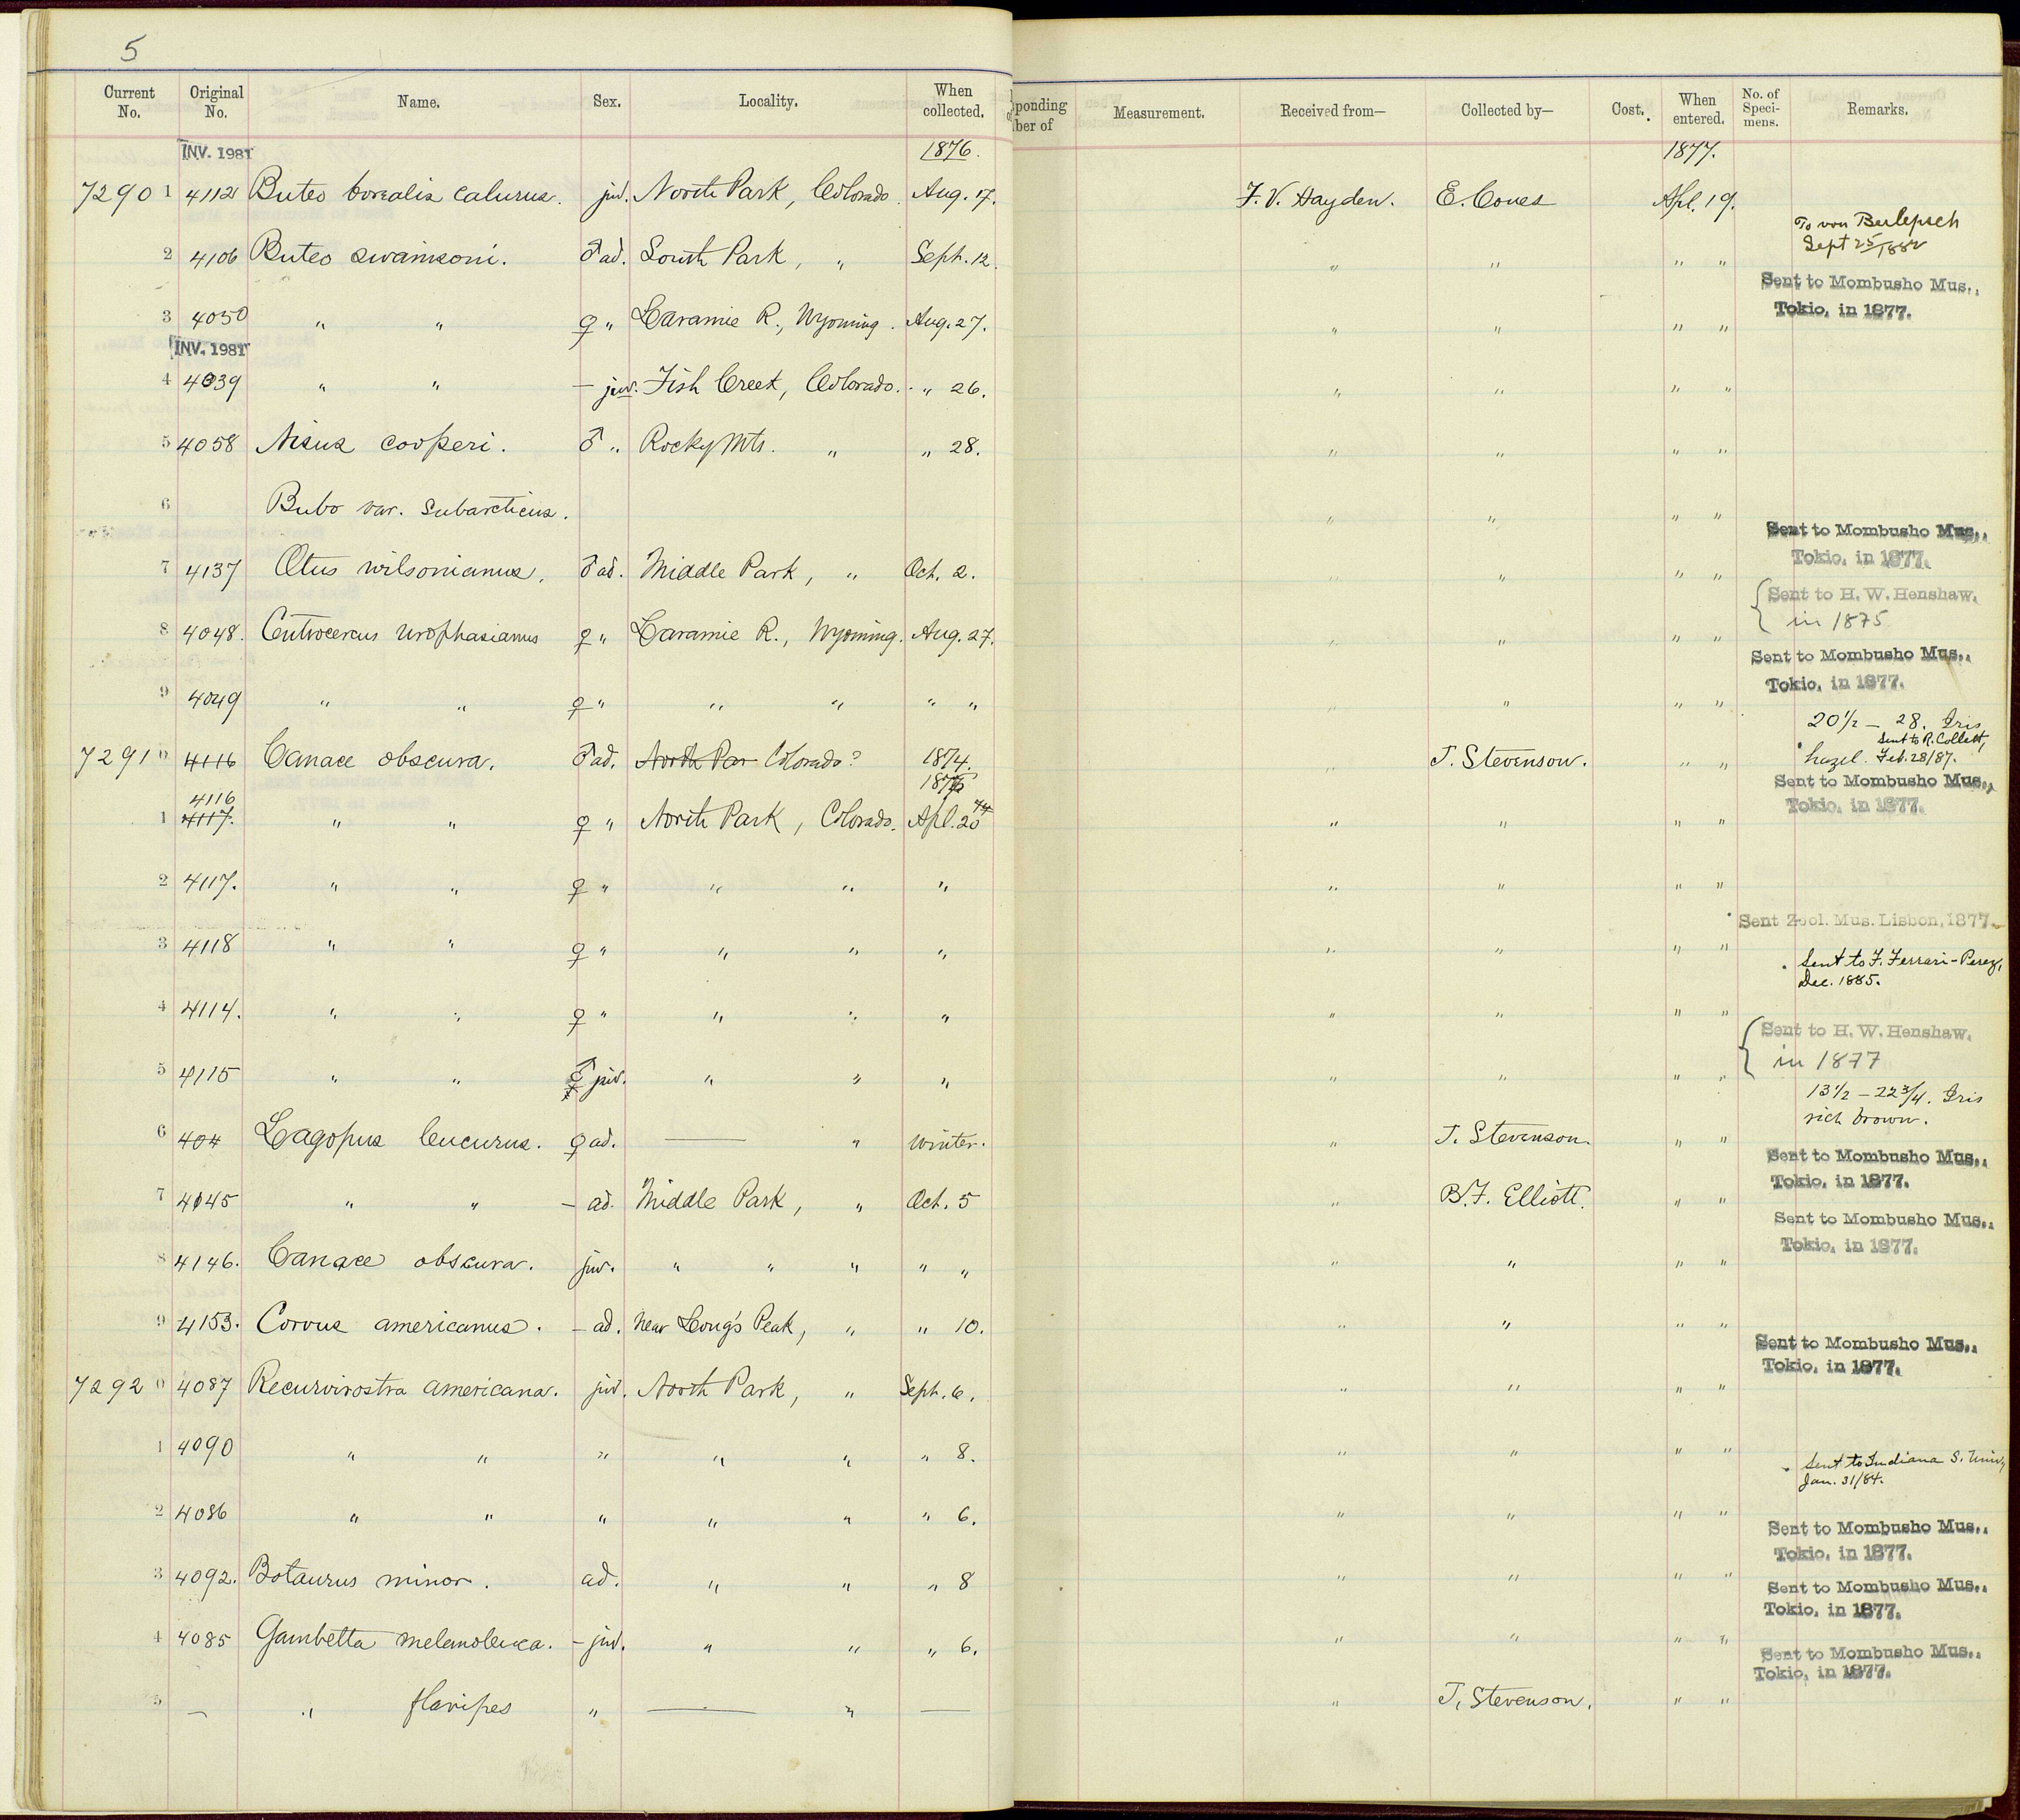 5
Current No. Original No. Name. Sex. Locality. When collected. ponding ber of Measurement. Received from— Collected by— Cost. When entered. No. of Specimens. Remarks.
INV. 1981 1876. 1877.
7290 1 4112 Buteo borealis calurus. juv. North Park, Colorado. Aug. 17. F. V. Hayden. E. Coues Apl. 19.
To von Berlepsch
Sept 25/1882
2 4106 Buteo swainsoni. ♂ ad. South Park, " Sept. 12. " " " "
Sent to Mombusho Mus.,
Tokio, in 1877.
3 4050 " " ♀ " Laramie R., Wyoming. Aug. 27. " " " "
INV. 1981
4 4039 " " — juv. Fish Creek, Colorado. " 26. " " " "
5 4058 Nisus cooperi. ♂ " Rocky Mts. " " 28. " " " "
6 Bubo var. subarcticus. " " " "
Sent to Mombusho Mus.,
Tokio, in 1877.
7 4137 Otus wilsonianus. ♂ ad. Middle Park, " Oct. 2. " " " "
Sent to H. W. Henshaw.
in 1875
8 4048. Centrocercus urophasianus ♀ " Laramie R., Wyoming. Aug. 27. " " " "
Sent to Mombusho Mus.,
Tokio, in 1877.
9 4049 " " ♀ " " " " " " " " "
20 1/2 — 28. Iris
hazel. Sent to R. Collett,
Feb. 28/87.
7291 0 4116 Canace obscura. ♂ ad. North Par Colorado? 1874. " T. Stevenson. " "
1876
Sent to Mombusho Mus.,
Tokio, in 1877.
4116
1 4117. " " ♀ " North Park, Colorado. Apl. 20 " " " "
2 4117. " " ♀ " " " " " " " "
Sent Zool. Mus. Lisbon, 1877.
3 4118 " " ♀ " " " " " " " "
Sent to F. Ferrari-Perez,
Dec. 1885.
4 4114. " " ♀ " " " " " " " "
Sent to H. W. Henshaw.
in 1877
5 4115 " " ♂ juv. " " " " " " "
13 1/2 — 22 3/4. Iris
rich brown.
6 404 Lagopus leucurus. ♀ ad. —— " winter. " T. Stevenson. " "
Sent to Mombusho Mus.,
Tokio, in 1877.
7 4145 " " — ad. Middle Park, " Oct. 5 " B. F. Elliott. " "
Sent to Mombusho Mus.,
Tokio, in 1877.
8 4146. Canace obscura. juv. " " " " " " " " "
9 4153. Corvus americanus. — ad. Near Long's Peak, " " 10. " " " "
Sent to Mombusho Mus.,
Tokio, in 1877.
7292 0 4087 Recurvirostra americana. juv. North Park, " Sept. 6. " " " "
1 4090 " " " " " " 8. " " " "
Sent to Indiana S. Univ,
Jan. 31/84.
2 4086 " " " " " " 6. " " " "
Sent to Mombusho Mus.,
Tokio, in 1877.
3 4092. Botaurus minor. ad. " " " 8 " " " "
Sent to Mombusho Mus.,
Tokio, in 1877.
4 4085 Gambetta melanoleuca. — juv. " " " 6. " " " "
Sent to Mombusho Mus.,
Tokio, in 1877.
5 — " flavipes " —— " —— " T. Stevenson. " "